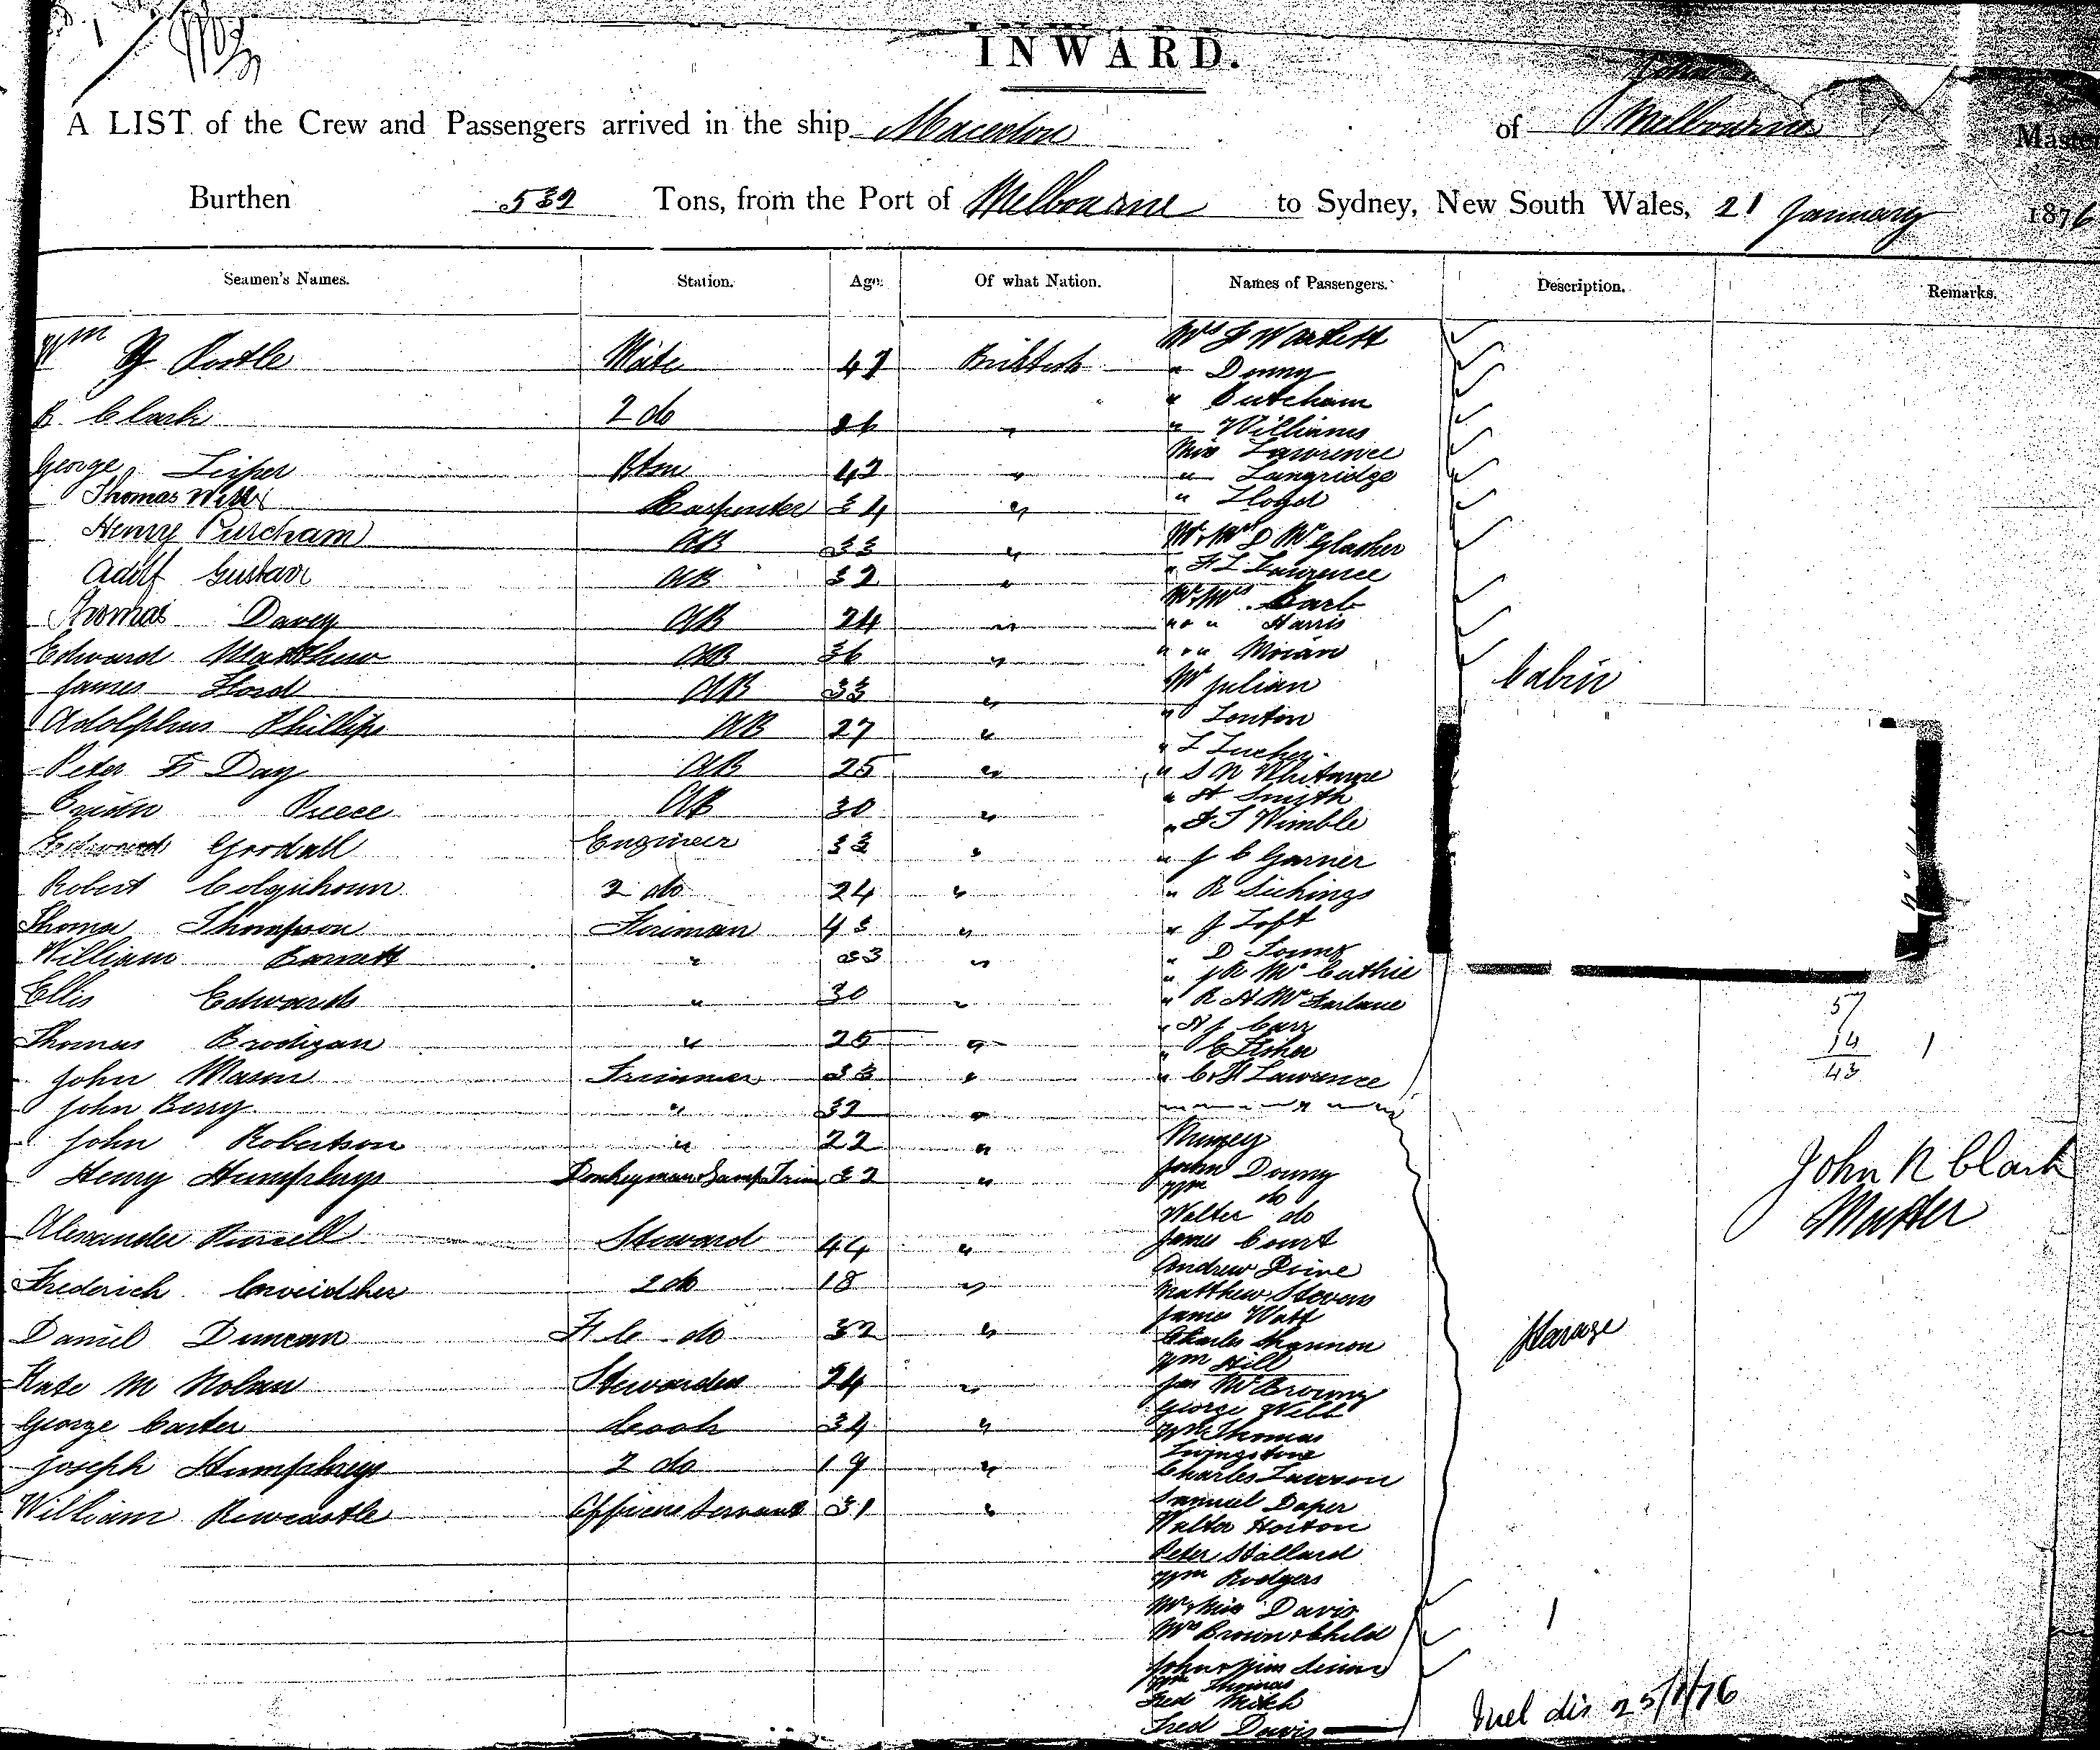 INWARD.
A LIST of the Crew and Passengers arrived in the ship Macedon of Melbourne Master
Burthen 532 Tons, from the Port of Melbourne to Sydney, New South Wales, 21 January 1876
Seamen's Names. Station. Age. Of what Nation. Names of Passengers. Description. Remarks.
Wm Postle Mate 47 British
R Clark 2 do 26 "
George Lisper Btsn 42 "
Thomas Carpenter 34 "
Henry Purcham AB 33 "
Adolf Gustav AB 32 "
Thomas Davey AB 24 "
Edward Matthew AB 36 "
James Ford AB 33 "
Adolphus Phillips AB 27 "
Peter F Day AB 25 "
Preece AB 30 "
Edward Goodall Engineer 33 "
Robert Colquhoun 2 do 24 "
Thomas Thompson Fireman 43 "
William Barnett " 33 "
Ellis Edwards " 30 "
Thomas Brodigan " 25 "
John Mason Trimmer 33 "
John Berry " 32 "
John Robertson " 22 "
Henry Humphrys Donkeyman & Lamp Trim 32 "
Alexander Russell Steward 44 "
Frederich 2 do 18 "
Daniel Duncan F C do 32 "
Kate M Nolan Stewardess 24 "
George Carter Cook 34 "
Joseph Humphreys 2 do 19 "
William Newcastle Officers Servant 31 "
Mrs
" Denny
" Butcham
" Williams
Miss Lawrence
" Langridge
" Lloyd
Mr & Mrs D McGlasher
" F L Lawrence
Mr & Mrs Carl
" " " Harris
" " " Moran
Mr Julian
" Lenton
" L Tucker
" S N Whitmore
" H Smith
" F T Wimble
" J C Garner
" R Sichings
" J Toft
" D Young
" J R McCuthie
" R H McFarlane
" H J Carr
" C Fisher
" C H Lawrence
Cabin
57
14
43
1
John Denny
Wm do
Walter do
James Court
Andrew
Matthew Stevens
James Watt
Charles Shannon
Wm Hill
Jas McBrowny
George Webb
Wm Thomas
Livingstone
Charles Lawson
Samuel Daper
Walter Horton
Peter Stallard
Wm Rodgers
Mr & Miss Davis
Mrs Brown & Child
John & Jim
Wm Thomas
Fred Mitch
Fred Davis
Sterage
1
John R Clark
Master
25/1/76